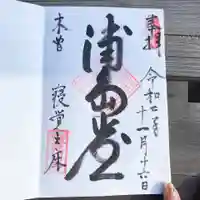 奉拝
令和二年
十一月十六日
浦島堂
木曽
寝覚之床